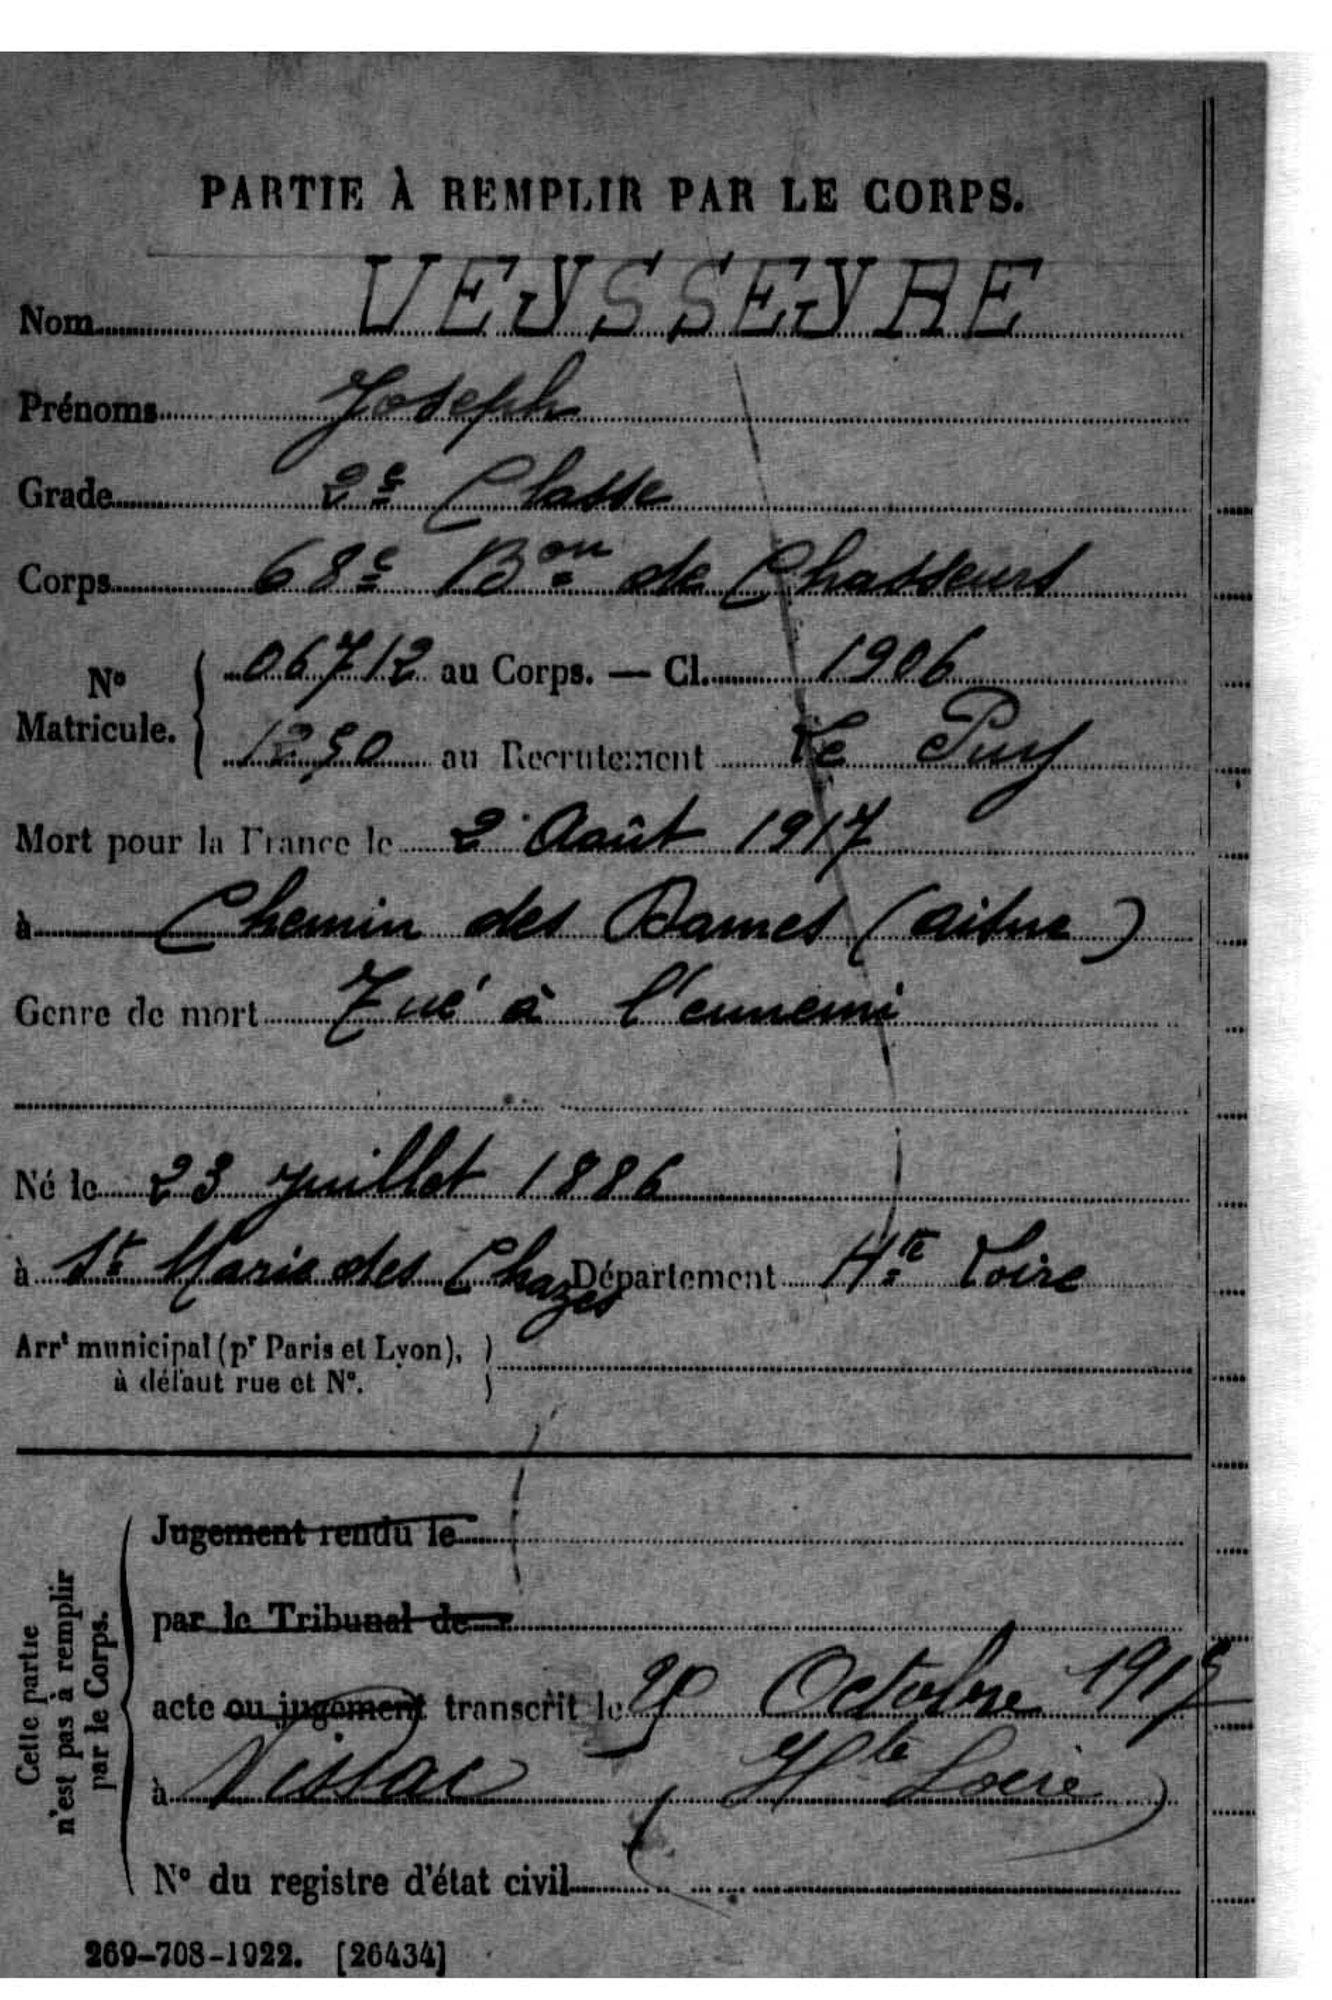 PARTIE À REMPLIR PAR LE CORPS.
Nom VEYSSEYRE
Prénoms Joseph
Grade 2e Classe
Corps 68e Bon de Chasseurs
No Matricule. 06712 au Corps. — Cl. 1906
1250 au Recrutement Le Puy
Mort pour la France le 2 Août 1917
à Chemin des Dames (aisne)
Genre de mort Tué à l'ennemi
Né le 23 juillet 1886
à St Marie des Chazes Département Hte Loire
Arrt municipal (pr Paris et Lyon),
à défaut rue et No.
Cette partie
n'est pas à remplir
par le Corps.
Jugement rendu le
par le Tribunal de
acte ou jugement transcrit le Octobre 1917
à Vissac (Hte Loire)
No du registre d'état civil
269-708-1922. [26434]